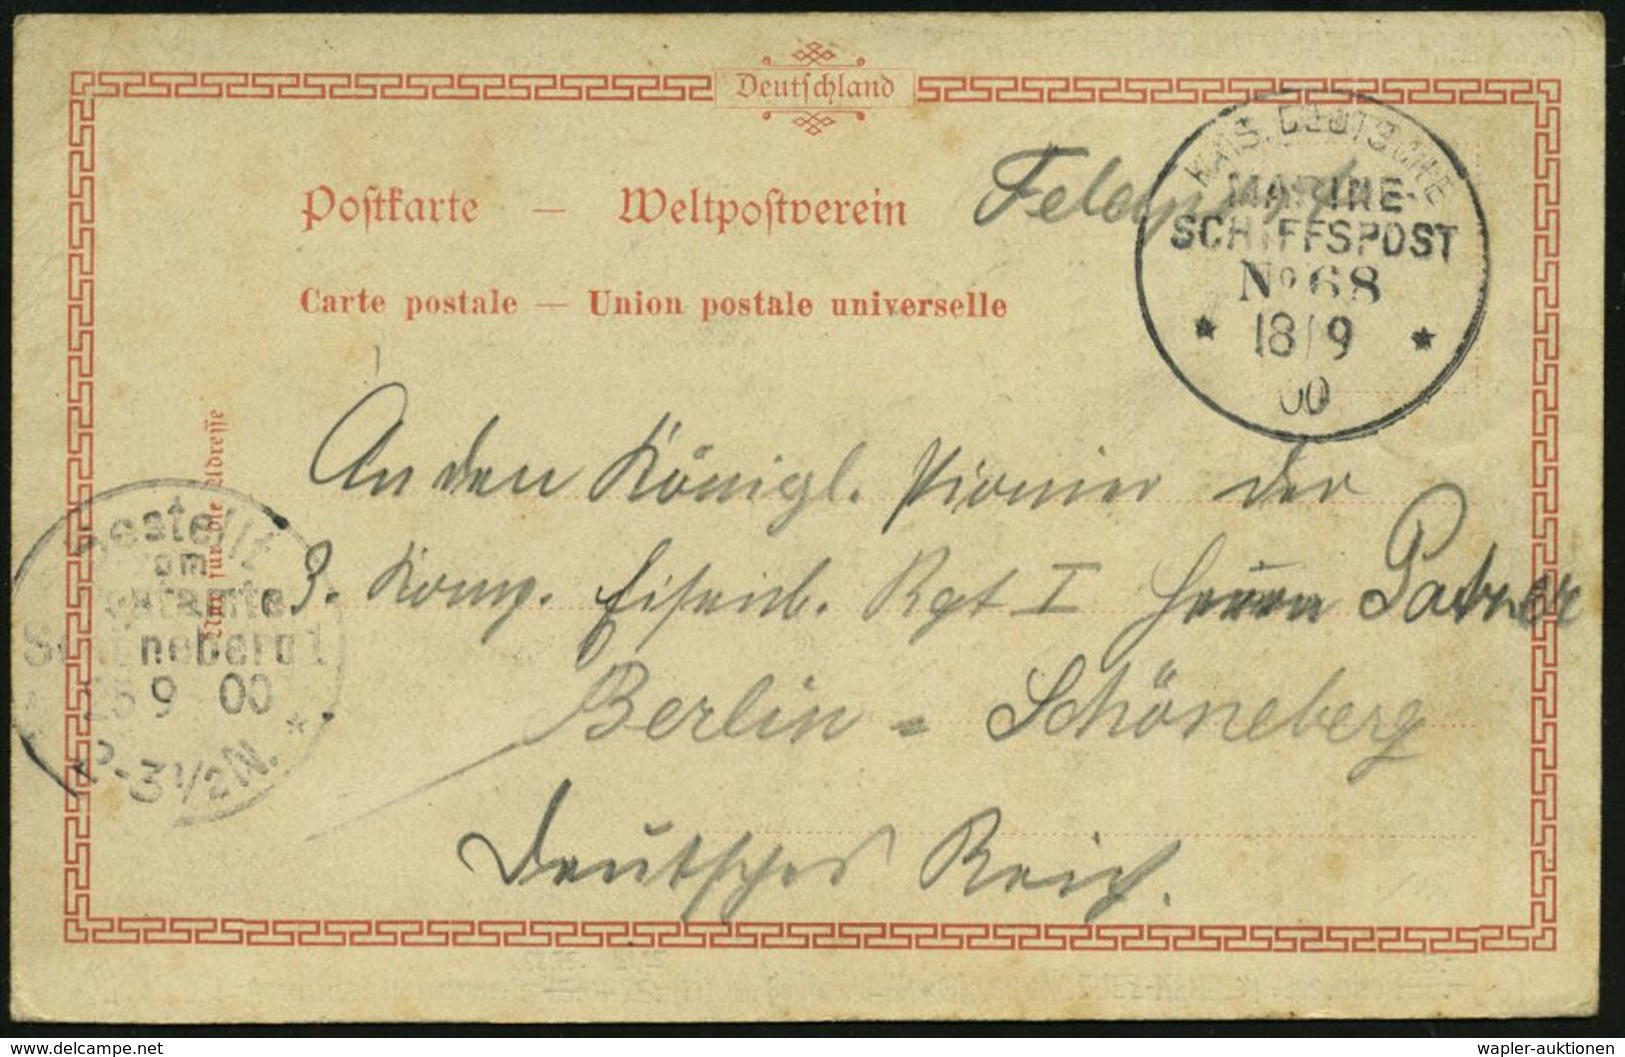 Deutschland
Postkarte — Weltpostverein
Carte postale — Union postale universelle
Feldpost
KAIS. DEUTSCHE
MARINE-
SCHIFFSPOST
No 68
18/9
00
Nur für die Adresse
An den Königl. Pionier der
3. Komp. Eisenb. Rgt I Herrn
Berlin = Schöneberg
Deutsches Reich.
Bestellt
vom
Postamte
Schöneberg 1
9 00
-3 1/2 N.
www.delcampe.net
wapler-auktionen